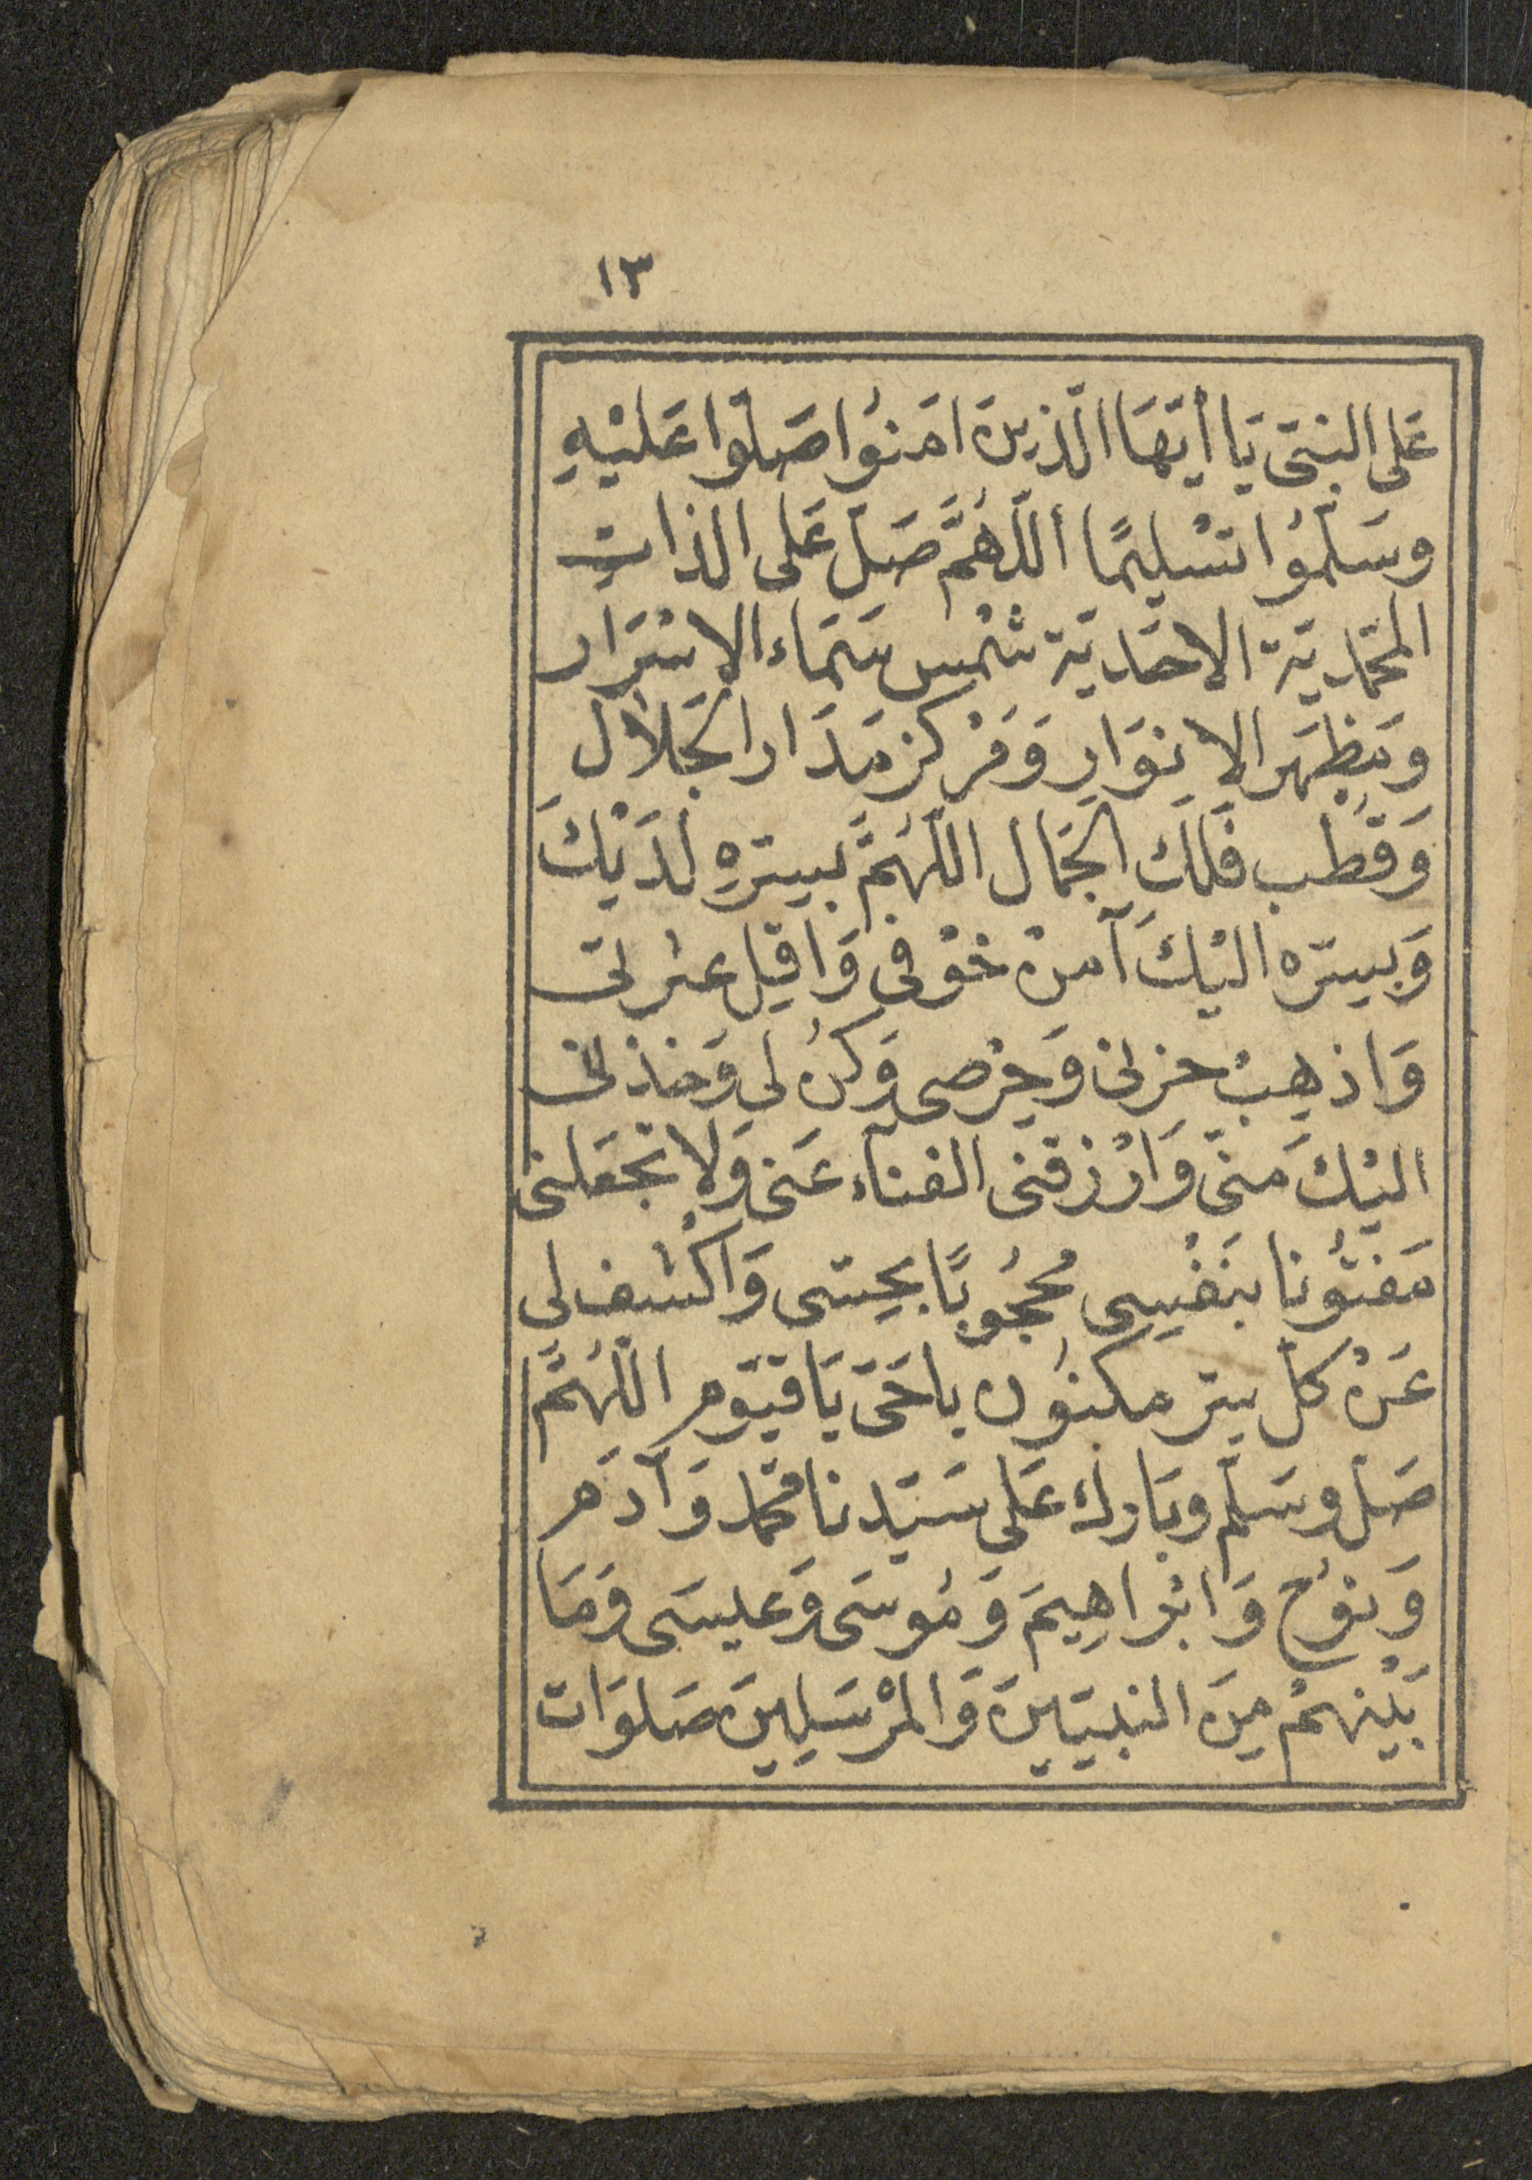 ١٣
عَلى النبىّ يَا أيّهَا الّذينَ امَنوُا صَلّوا عَليْهِ
وسَلّموُا تسْليمًا أللّهُمَّ صَلّ عَلى الذاتِ
المحمّديّة الاحَديّة شمْس سَمَاء الاسْرَار
وَمَظْهَر الانوَارِ وَمَرْكز مَدَار الجَلَال
وَقطْب فَلَك الجَمَال اللّهُمَّ بسِرّهِ لدَيْكَ
وَبسِيَره اليْكَ آمنْ خوْفى وَاقِل عثرتى
وَاذهِبْ حزنى وَحِرْصى وَكنْ لى وَخذنى
اليْكَ منّى وَارْزقنى الفنَاء عَنى وَلا تجْعَلنى
مَفتوُنا بنَفْسِى مُحجُوبًا بحِسّى وَاكْشف لى
عَنْ كلّ سِرّ مكنوُن ياحَىّ يَا قيّوم اللّهُمَّ
صَلّ وسَلّم وبَارك عَلى سَيّدنا محمّد وَآدَم
وَنوُح وَابْرَاهِيمَ وَموُسَى وَعيسَى وَمَا
بَيْنهمْ مِنَ النبيّينَ وَالمرْسَلِينَ صَلوَات